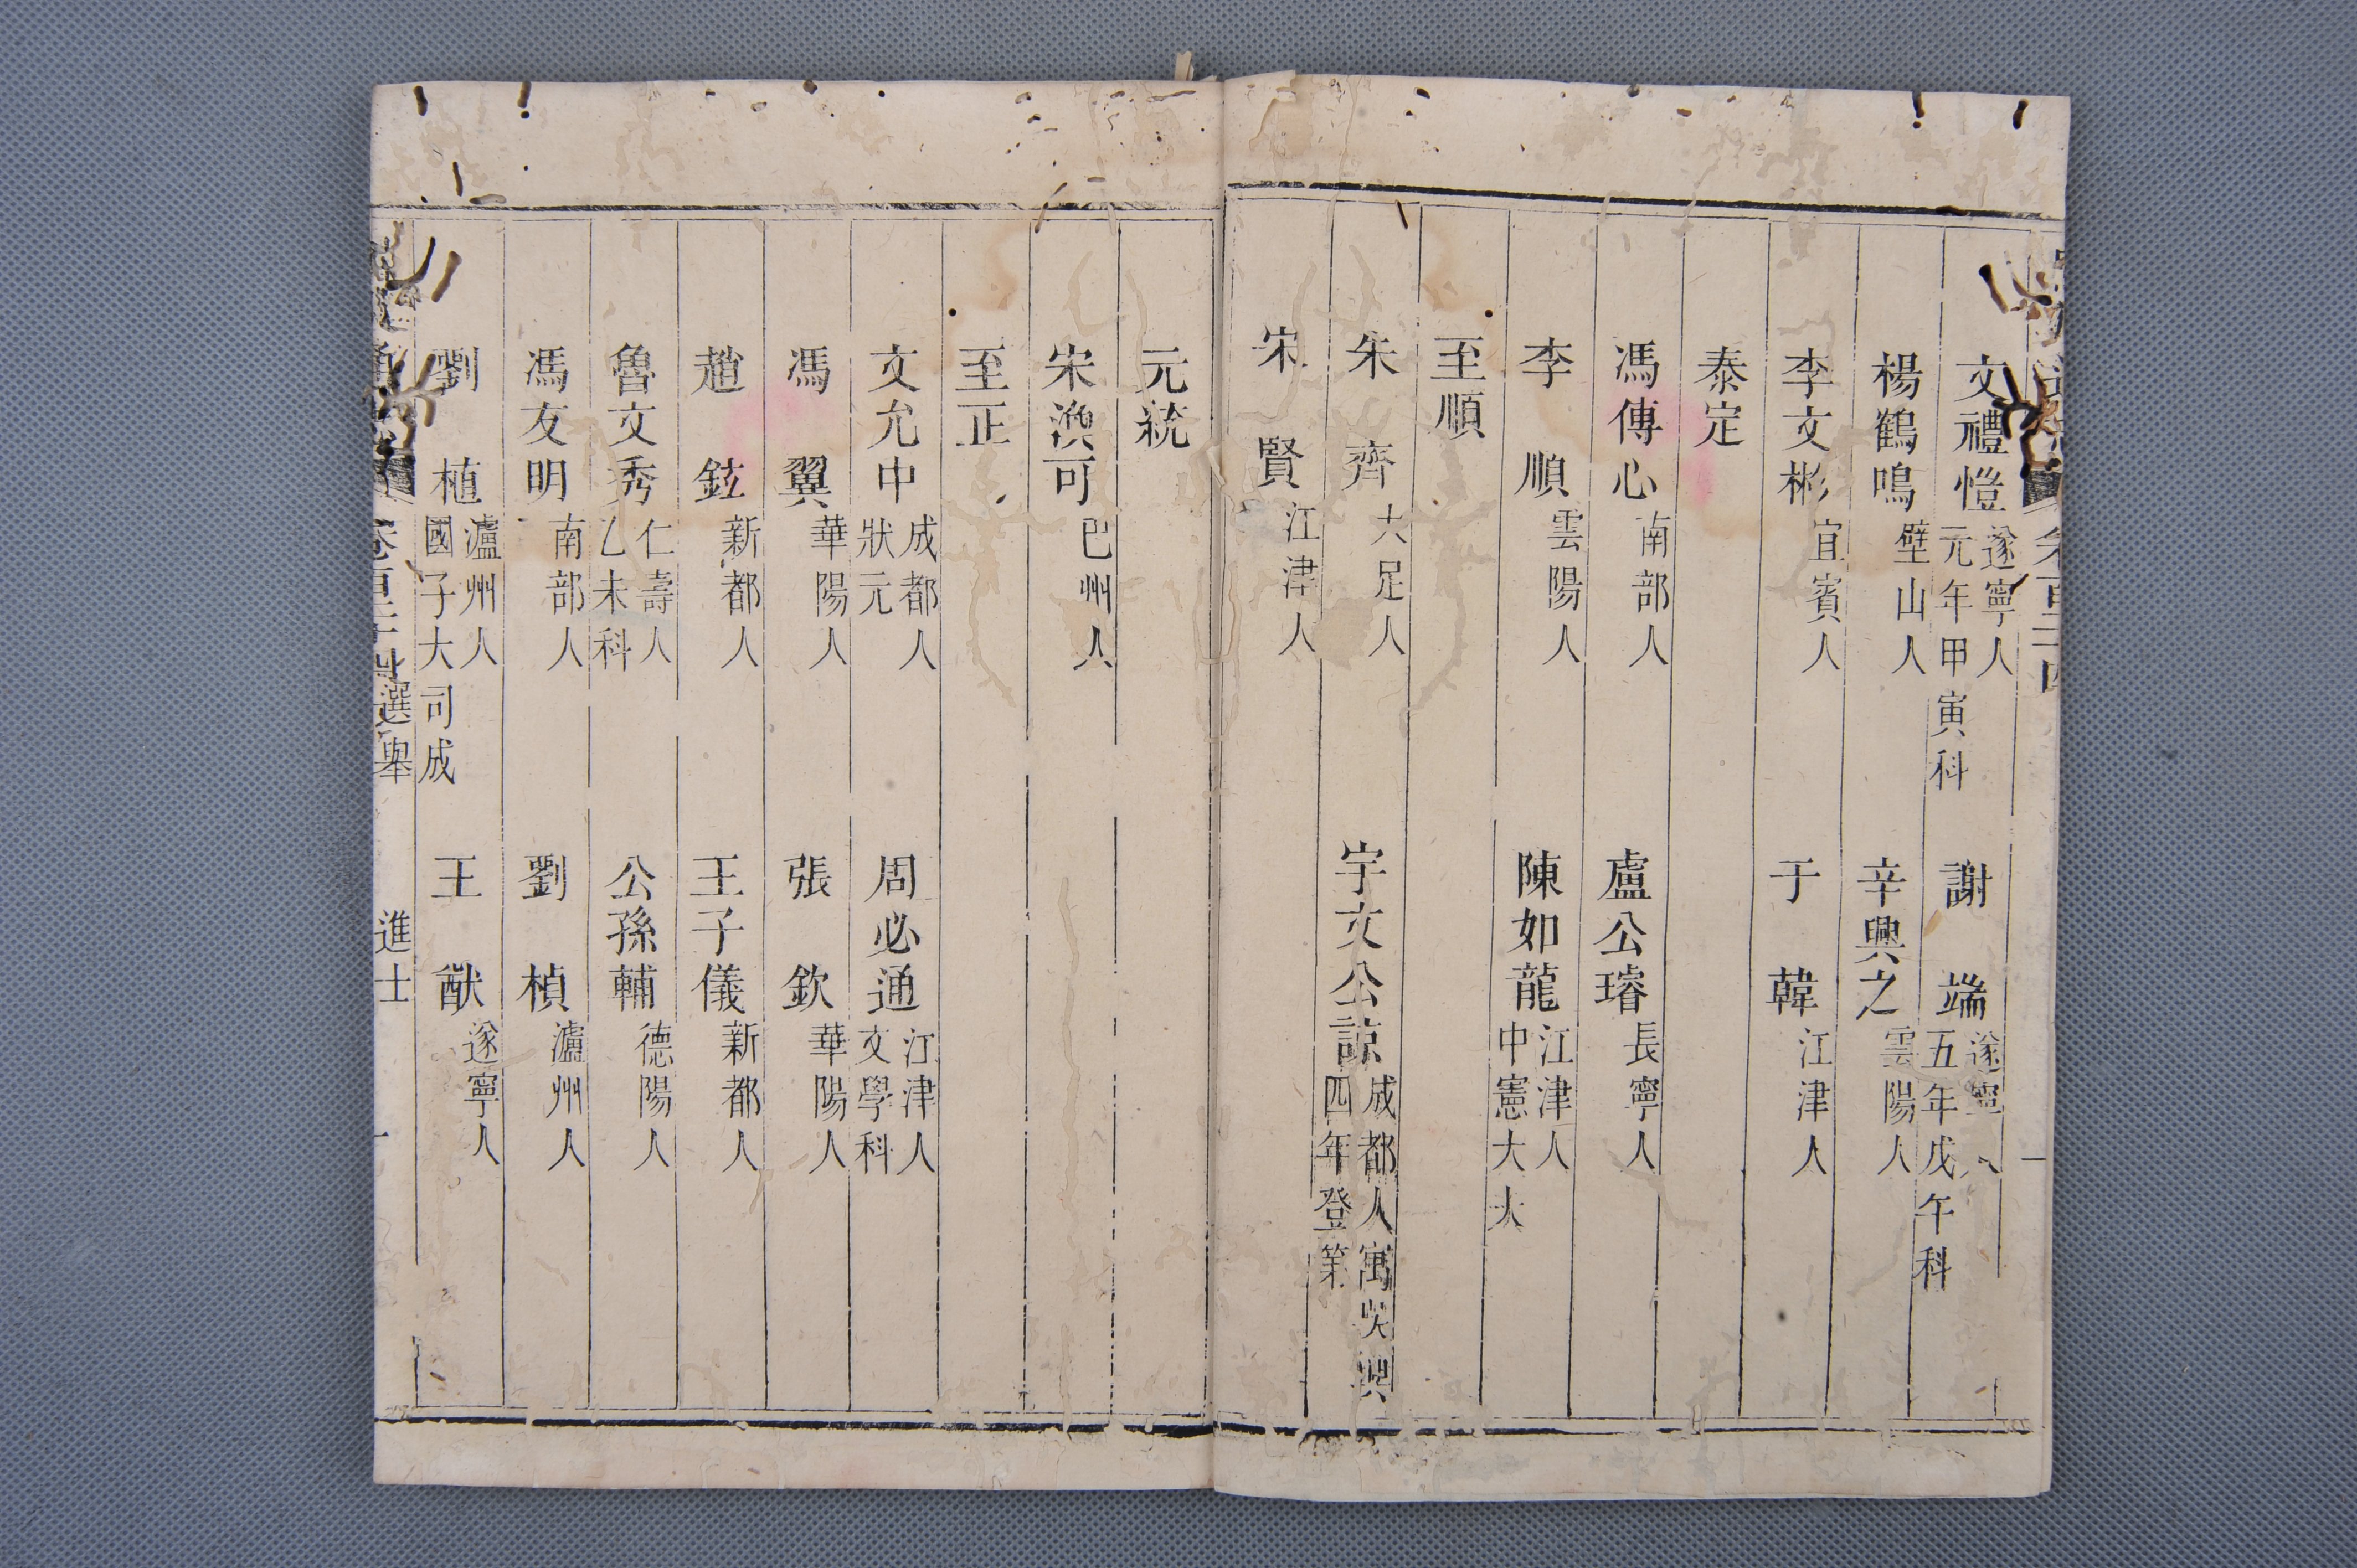 文禮愷 遂寧人元年甲寅科 謝端 遂寧人五年戊午科
楊鶴鳴 壁山人 辛興之 雲陽人
李文彬 宜賓人 于韓 江津人
泰定
馮傳心 南部人 盧公璿 長寧人
李順 雲陽人 陳如龍 江津人中憲大夫
至順
朱齊 大足人 宇文公諒 成都人寓吳興四年登第
宋賢 江津人
元統
宋瀕可 巴州人
至正
文允中 成都人狀元 周必通 江津人文學科
馮翼 華陽人 張欽 華陽人
趙鉉 新都人 王子儀 新都人
魯文秀 仁壽人乙未科 公孫輔 德陽人
馮友明 南部人 劉楨 瀘州人
劉植 瀘州人國子大司成 王猷 遂寧人
選舉 進士 一